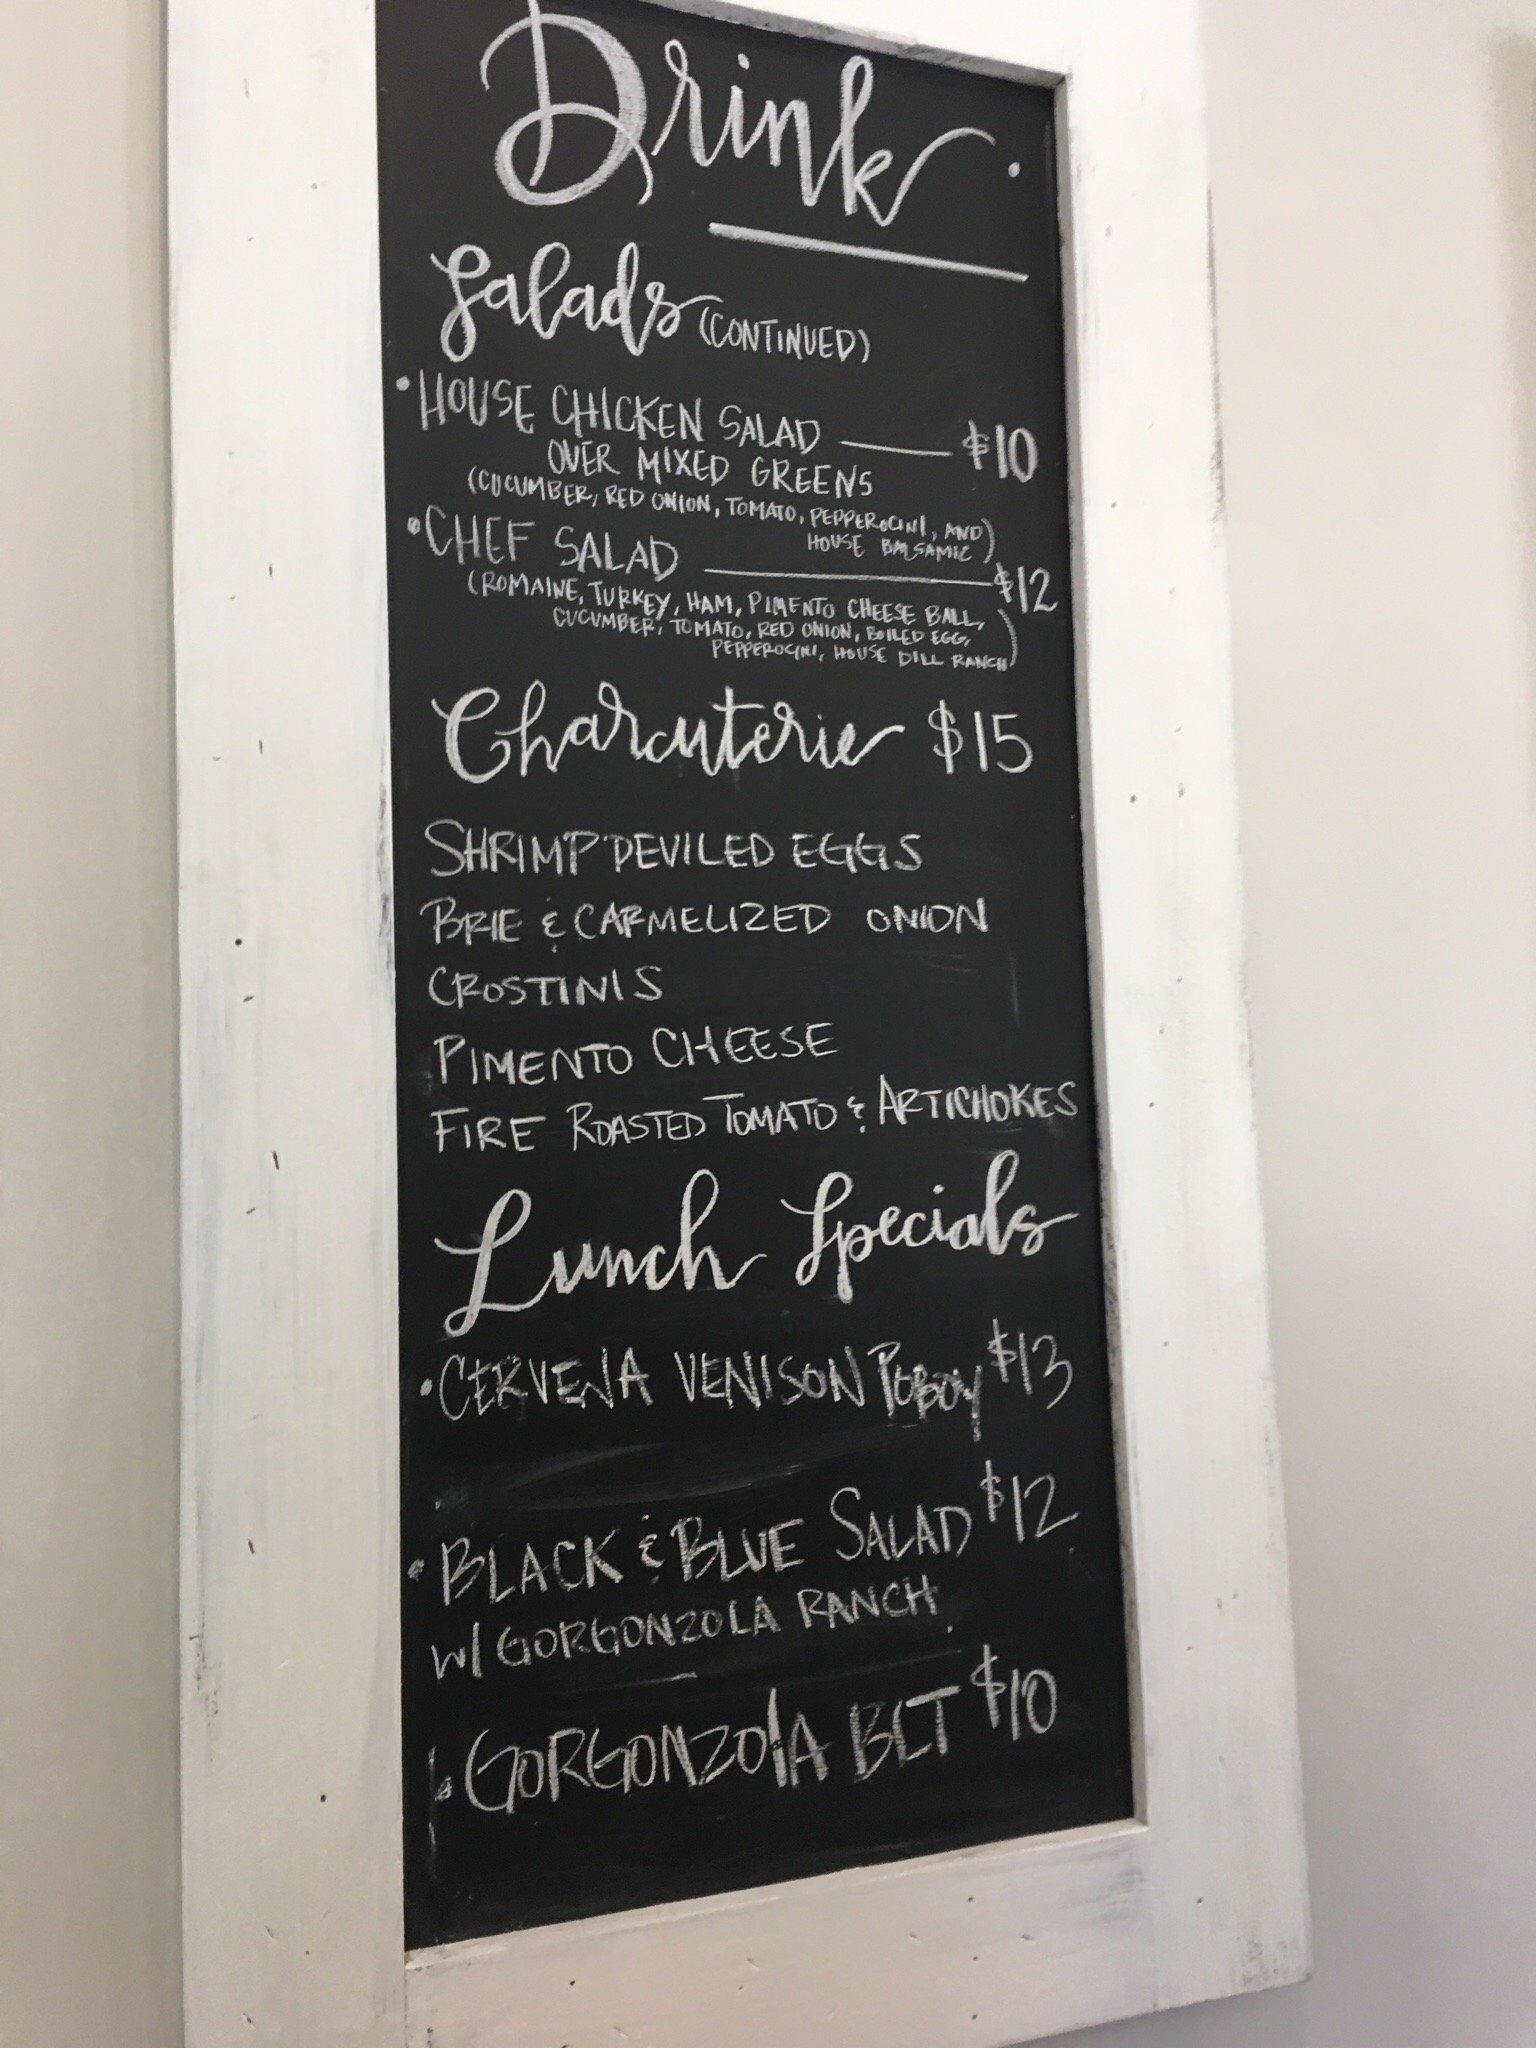 Drink.
Salads (CONTINUED)
• HOUSE CHICKEN SALAD — $10
OVER MIXED GREENS
(CUCUMBER, RED ONION, TOMATO, PEPPEROCINI, AND
HOUSE BALSAMIC)
• CHEF SALAD — $12
(ROMAINE, TURKEY, HAM, PIMENTO CHEESE BALL,
CUCUMBER, TOMATO, RED ONION, BOILED EGG,
PEPPEROCINI, HOUSE DILL RANCH)
Charcuterie $15
SHRIMP DEVILED EGGS
BRIE & CARMELIZED ONION
CROSTINIS
PIMENTO CHEESE
FIRE ROASTED TOMATO & ARTICHOKES
Lunch Specials
• CERVENA VENISON POBOY $13
• BLACK & BLUE SALAD $12
W/ GORGONZOLA RANCH
• GORGONZOlA BLT $10